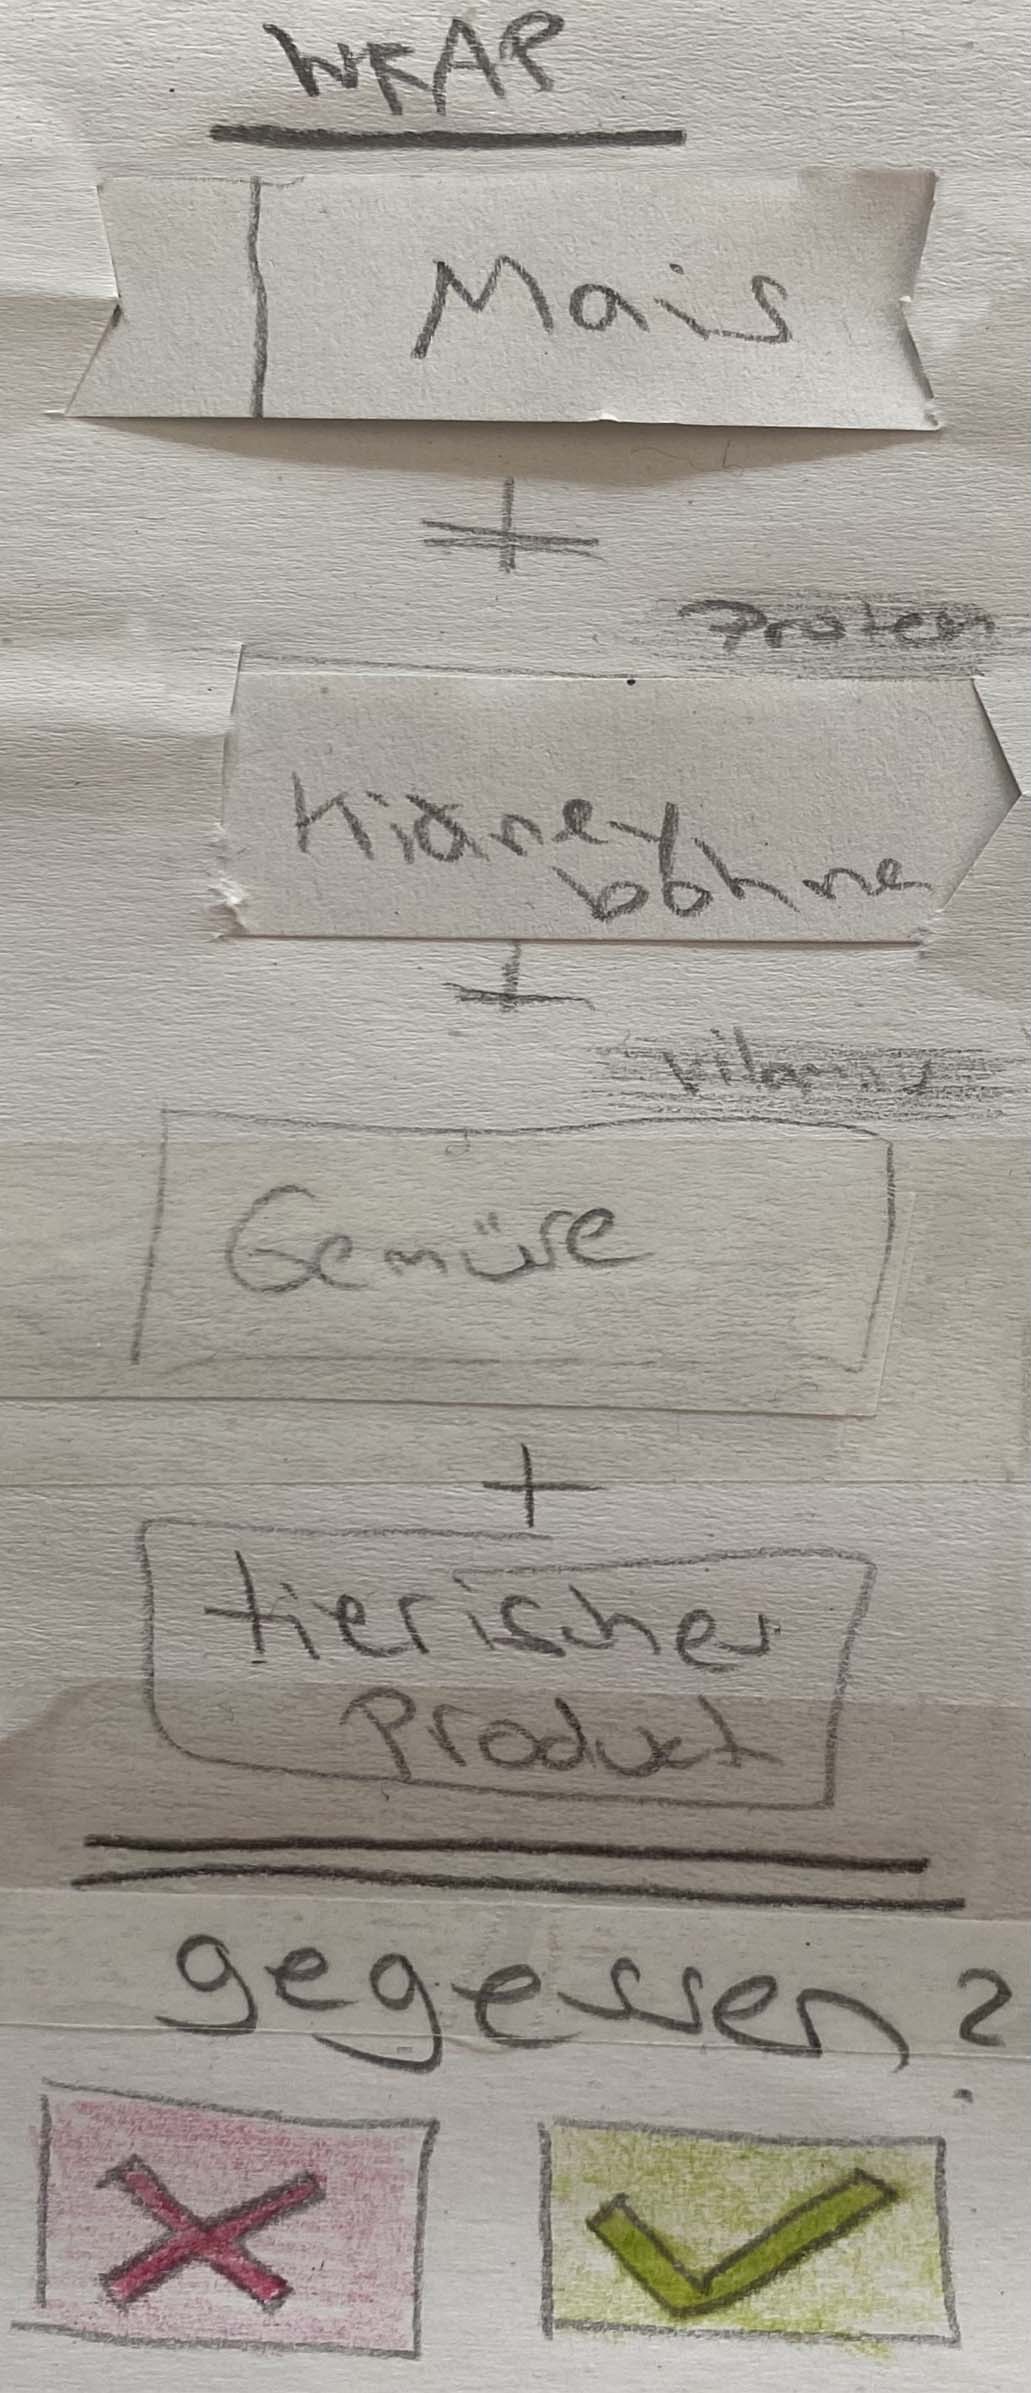 WRAP
Mais
+
Protein
Kidney
bohne
+
Vitamin
Gemüse
+
tierisches
Product
gegessen?